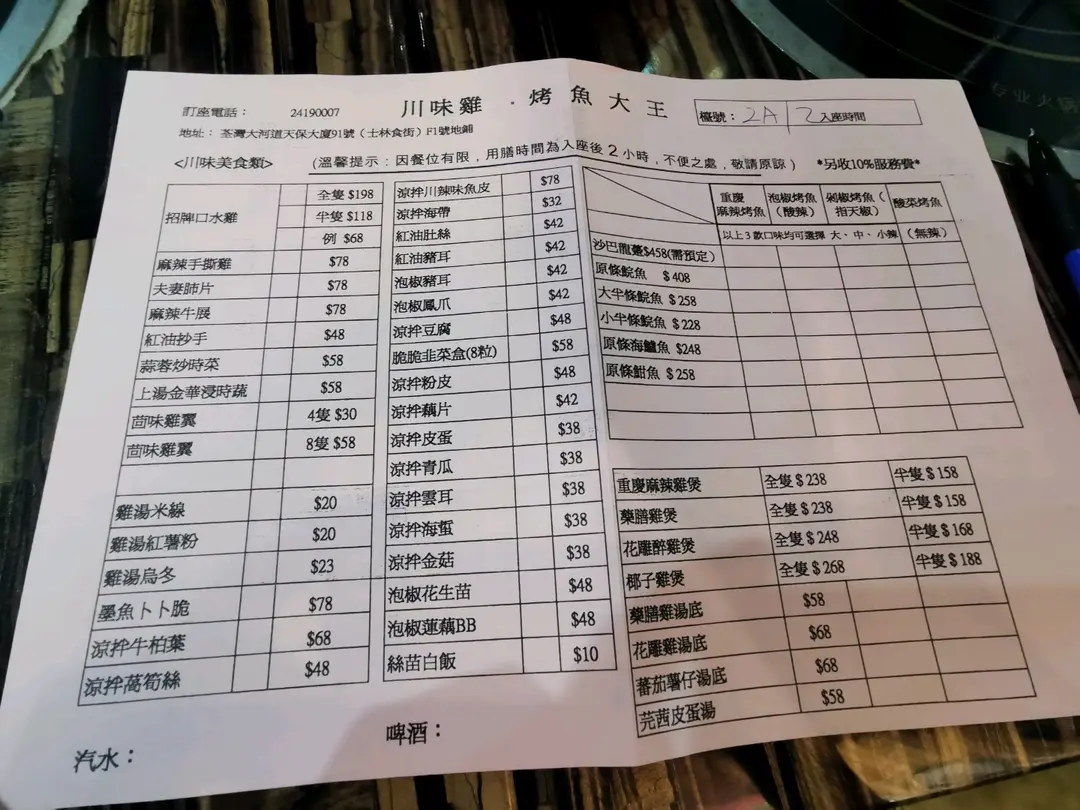 訂座電話： 24190007
川味雞 · 烤魚大王
檯號： 2A / 2 入座時間
地址： 荃灣大河道天保大廈91號（士林食街）F1號地鋪
<川味美食類>
(溫馨提示：因餐位有限，用膳時間為入座後 2 小時，不便之處，敬請原諒） *另收10%服務費*
招牌口水雞 全隻 $198
半隻 $118
例 $68
麻辣手撕雞 $78
夫妻肺片 $78
麻辣牛展 $78
紅油抄手 $48
蒜蓉炒時菜 $58
上湯金華浸時蔬 $58
茴味雞翼 4隻 $30
茴味雞翼 8隻 $58
雞湯米線 $20
雞湯紅薯粉 $20
雞湯烏冬 $23
墨魚卜卜脆 $78
涼拌牛柏葉 $68
涼拌萵筍絲 $48
汽水：
涼拌川辣味魚皮 $78
涼拌海帶 $32
紅油肚絲 $42
紅油豬耳 $42
泡椒豬耳 $42
泡椒鳳爪 $42
涼拌豆腐 $48
脆脆韭菜盒(8粒) $58
涼拌粉皮 $48
涼拌藕片 $42
涼拌皮蛋 $38
涼拌青瓜 $38
涼拌雲耳 $38
涼拌海蜇 $38
涼拌金菇 $38
泡椒花生苗 $48
泡椒蓮藕BB $48
絲苗白飯 $10
啤酒：
重慶麻辣烤魚 泡椒烤魚（酸辣） 剁椒烤魚（指天椒） 酸菜烤魚
以上 3 款口味均可選擇 大、中、小辣 （無辣）
沙巴龍躉$458(需預定)
原條鯇魚 $ 408
大半條鯇魚 $ 258
小半條鯇魚 $ 228
原條海鱸魚 $248
原條鉗魚 $ 258
重慶麻辣雞煲 全隻 $ 238 半隻 $ 158
藥膳雞煲 全隻 $ 238 半隻 $ 158
花雕醉雞煲 全隻 $ 248 半隻 $ 168
椰子雞煲 全隻 $ 268 半隻 $ 188
藥膳雞湯底 $58
花雕雞湯底 $68
蕃茄薯仔湯底 $68
芫茜皮蛋湯 $58
专业火锅